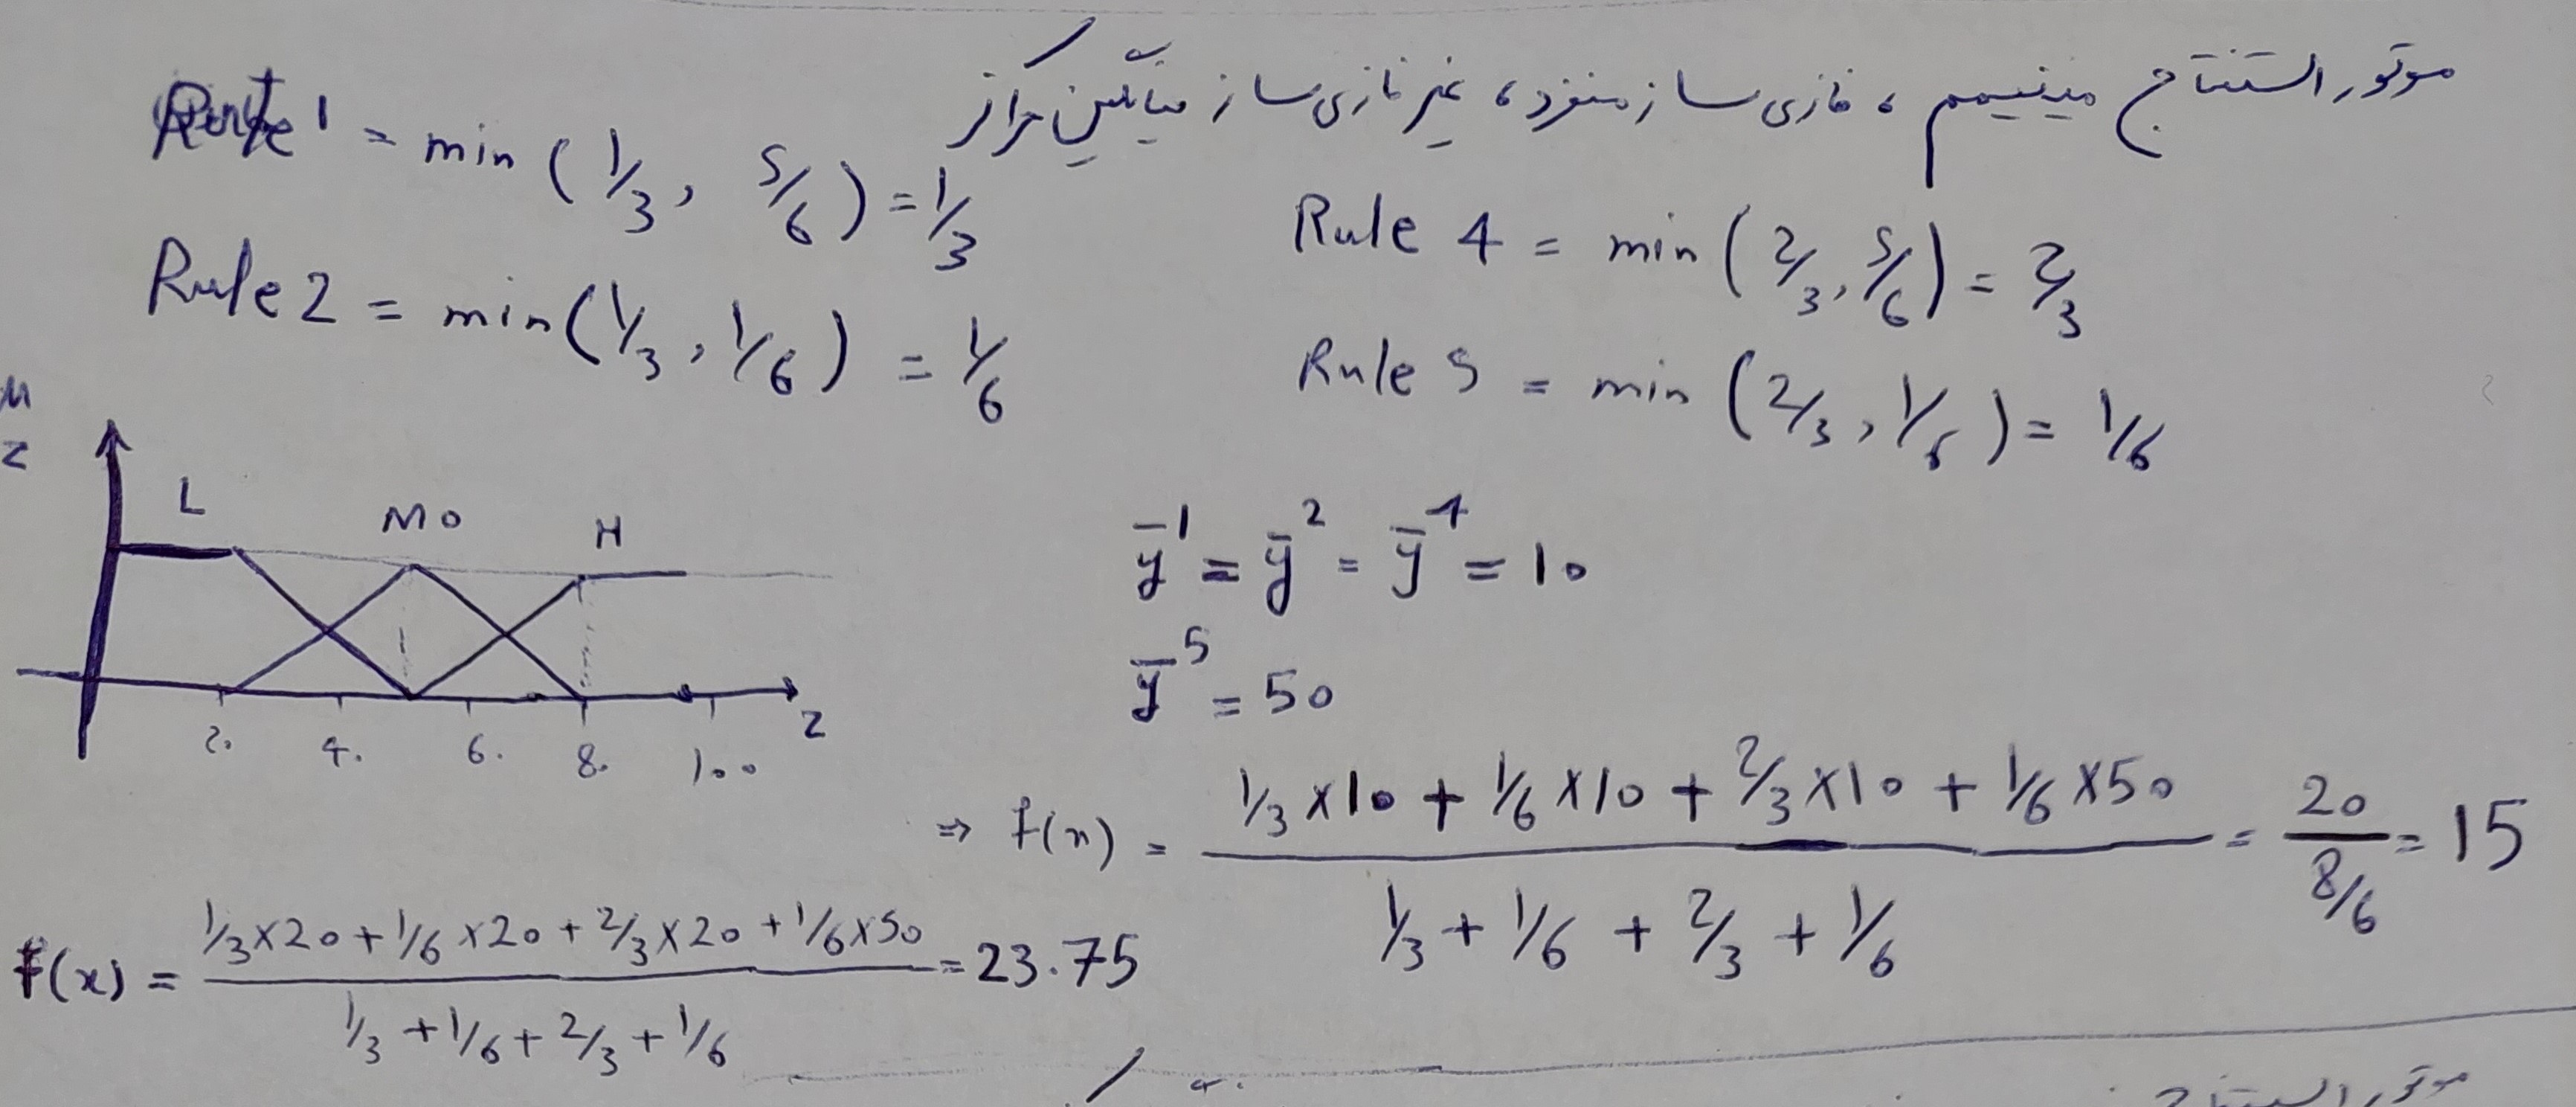 موتور استنتاج مینیمم ، فازی ساز منفرد ، غیر فازی ساز میانگین مراکز
Rule 1 = min ( 1/3 , 5/6 ) = 1/3
Rule 2 = min ( 1/3 , 1/6 ) = 1/6
Rule 4 = min ( 2/3 , 5/6 ) = 2/3
Rule 5 = min ( 2/3 , 1/6 ) = 1/6
μ
z
L Mo H
۲۰ ۴۰ ۶۰ ۸۰ ۱۰۰ z
ȳ¹ = ȳ² = ȳ⁴ = 10
ȳ⁵ = 50
⇒ f(x) = (1/3 × 10 + 1/6 × 10 + 2/3 × 10 + 1/6 × 50) / (1/3 + 1/6 + 2/3 + 1/6) = 20 / (8/6) = 15
f(x) = (1/3 × 20 + 1/6 × 20 + 2/3 × 20 + 1/6 × 50) / (1/3 + 1/6 + 2/3 + 1/6) = 23.75
موتور استنتاج